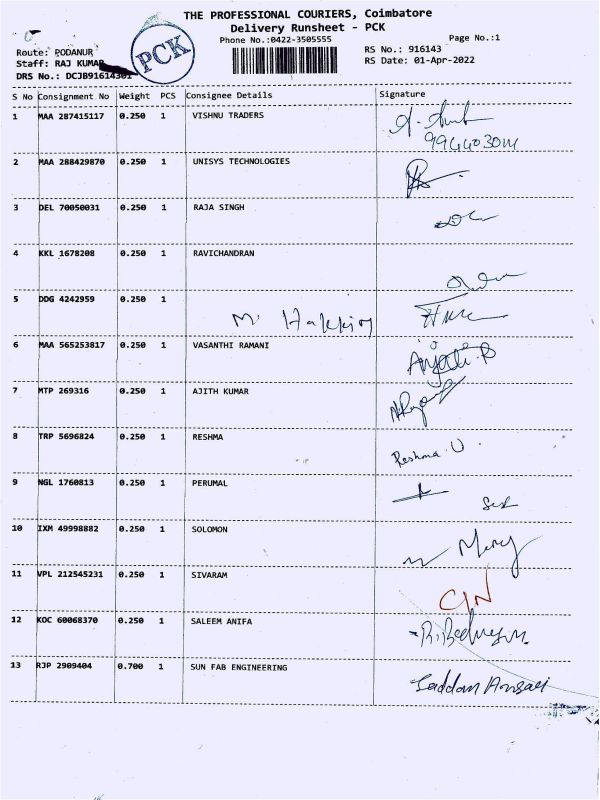 THE PROFESSIONAL COURIERS, Coimbatore
Delivery Runsheet - PCK
Phone No.:0422-3505555
Page No.:1
Route: PODANUR
Staff: RAJ KUMAR
DRS No.: DCJB91614301
PCK
RS No.: 916143
RS Date: 01-Apr-2022
S No Consignment No Weight PCS Consignee Details Signature
1 MAA 287415117 0.250 1 VISHNU TRADERS
2 MAA 288429870 0.250 1 UNISYS TECHNOLOGIES
3 DEL 70050031 0.250 1 RAJA SINGH
4 KKL 1678208 0.250 1 RAVICHANDRAN
5 DDG 4242959 0.250 1
6 MAA 565253817 0.250 1 VASANTHI RAMANI
7 MTP 269316 0.250 1 AJITH KUMAR
8 TRP 5696824 0.250 1 RESHMA Reshma. U
9 NGL 1760813 0.250 1 PERUMAL
10 IXM 49998882 0.250 1 SOLOMON
11 VPL 212545231 0.250 1 SIVARAM
12 KOC 60068370 0.250 1 SALEEM ANIFA
13 RJP 2909404 0.700 1 SUN FAB ENGINEERING Saddam Ansari